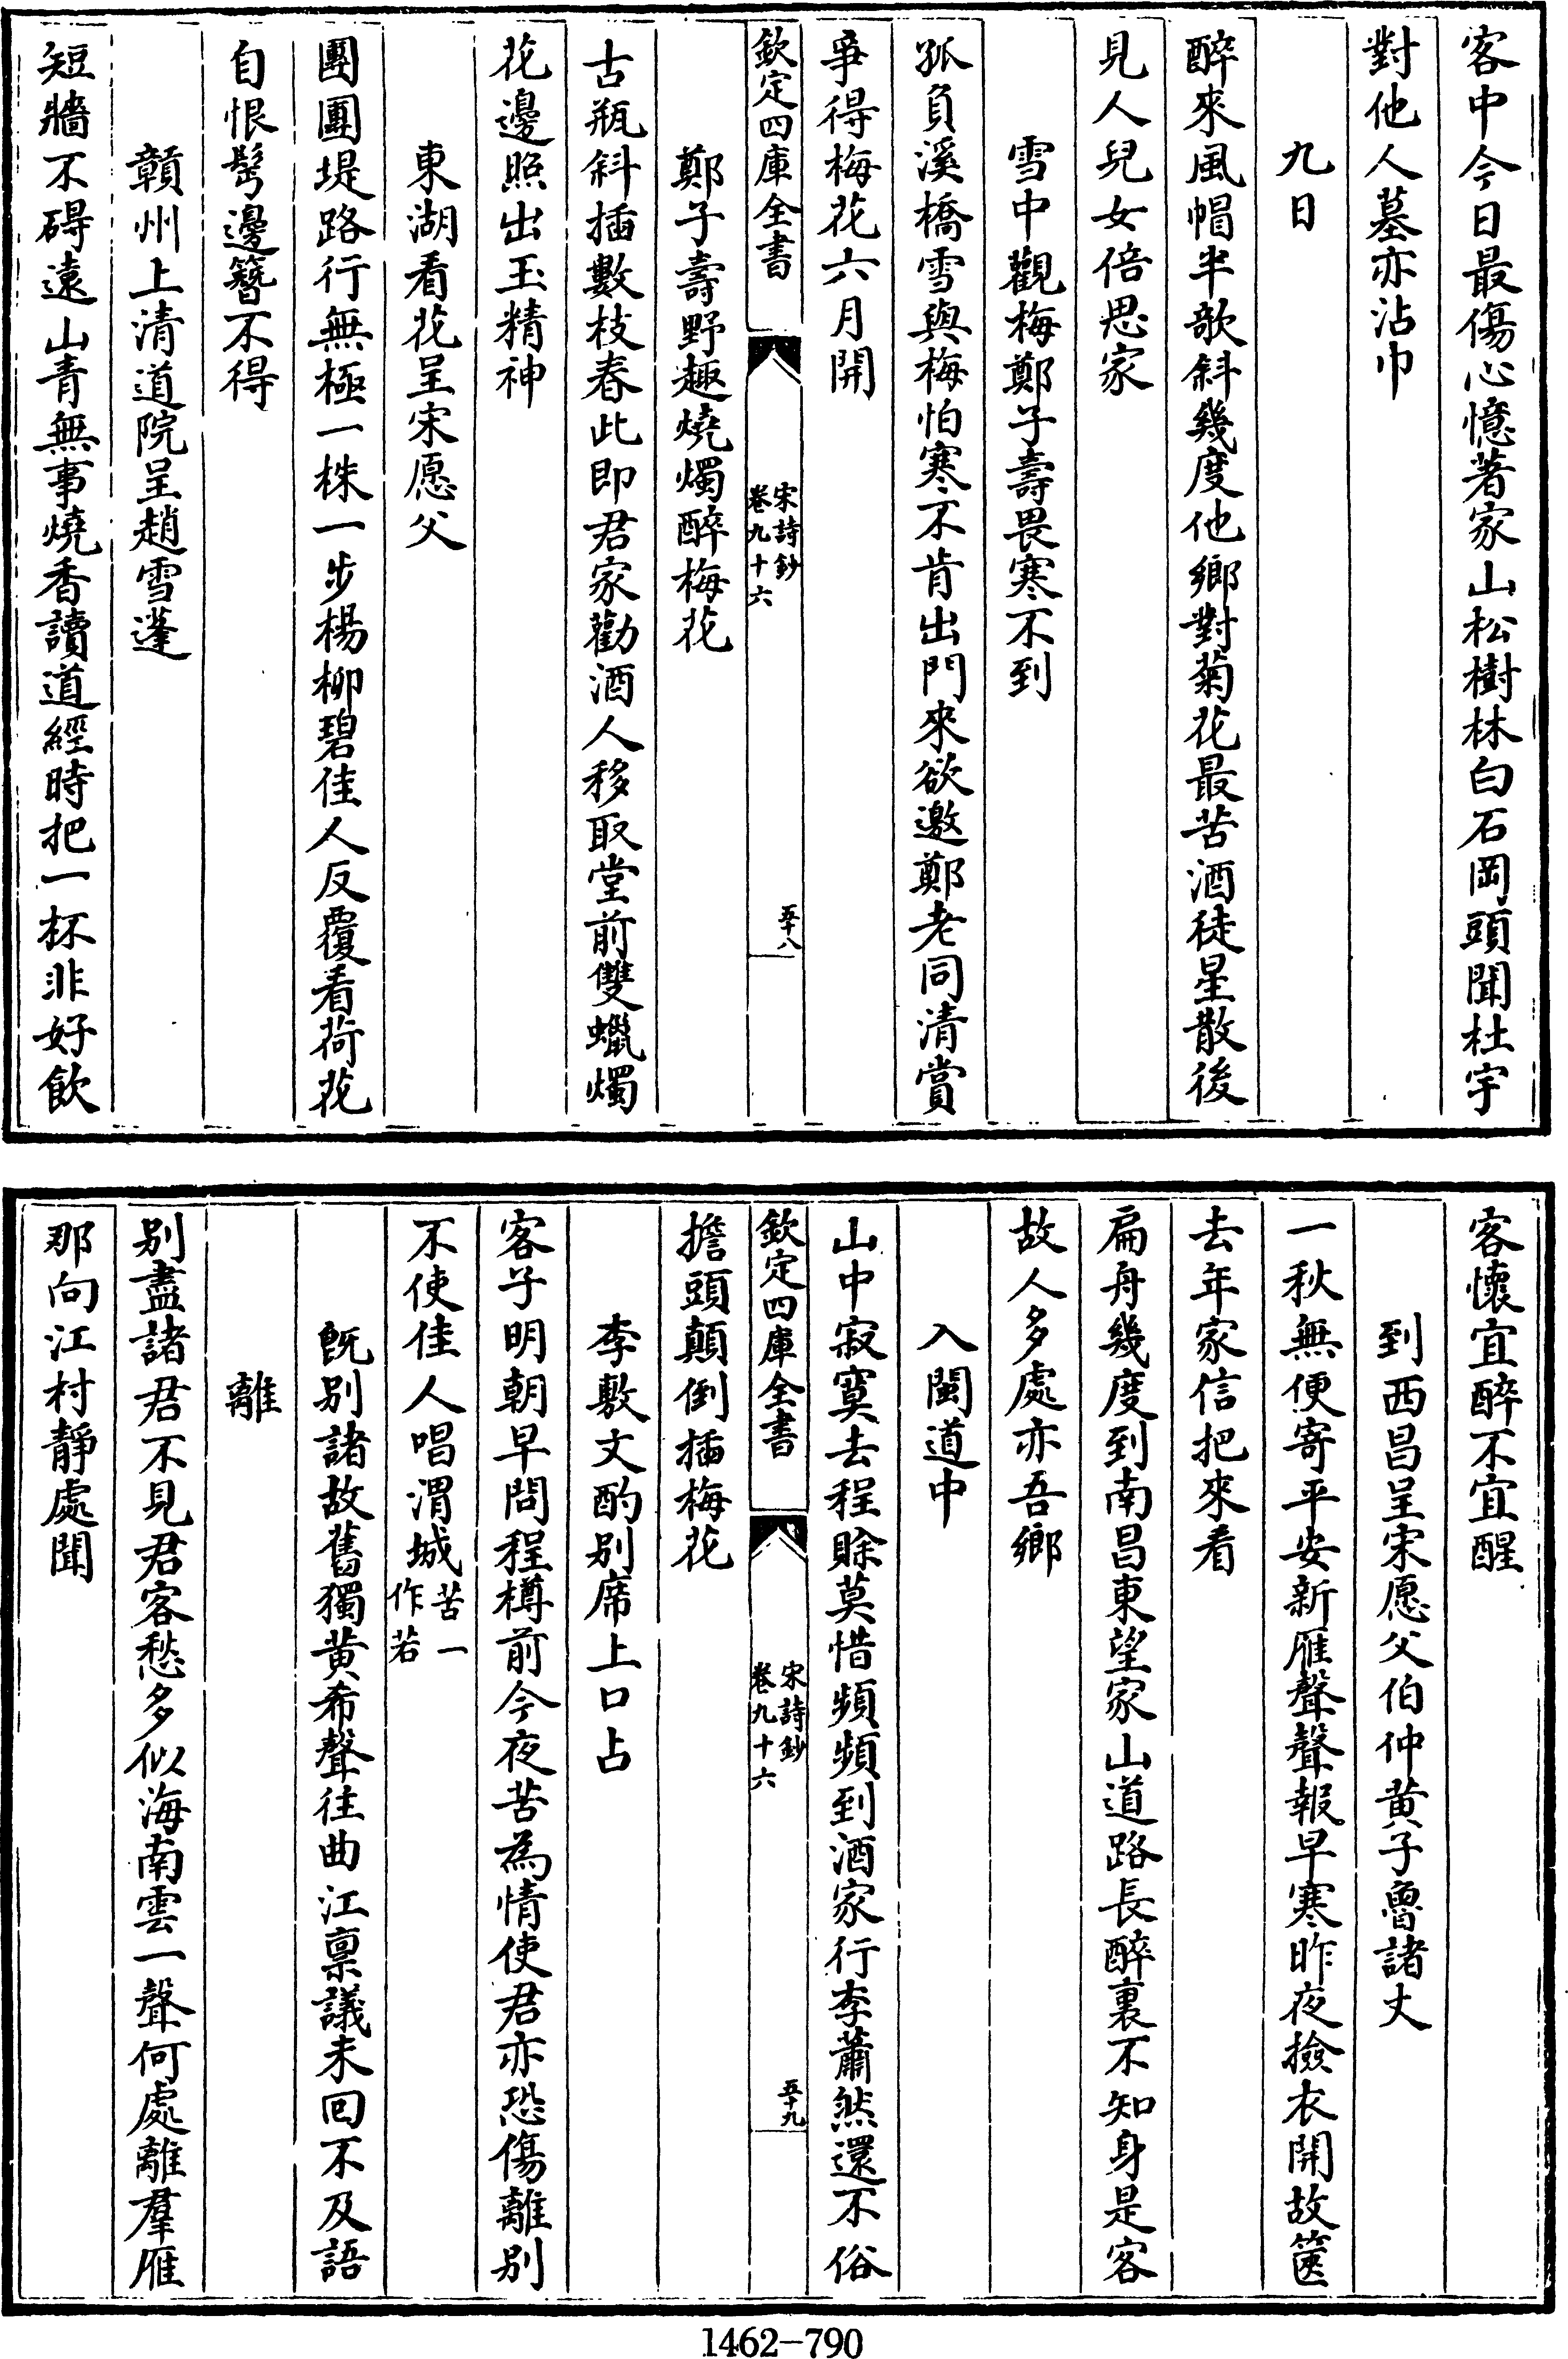 客中今日最傷心憶著家山松樹林白石岡頭聞杜宇
對他人墓亦沾巾
九日
醉來風帽半欹斜幾度他鄉對菊花最苦酒徒星散後
見人兒女倍思家
雪中觀梅鄭子壽畏寒不到
孤負溪橋雪與梅怕寒不肯出門來欲邀鄭老同清賞
爭得梅花六月開
欽定四庫全書
宋詩鈔
卷九十六
五十八
鄭子壽野趣燒燭醉梅花
古瓶斜插數枝春此即君家勸酒人移取堂前雙蠟燭
花邊照出玉精神
東湖看花呈宋愿父
團團堤路行無極一株一步楊柳碧佳人反覆看荷花
自恨鬂邊簪不得
贑州上清道院呈趙雪蓬
短牆不碍遠山青無事燒香讀道經時把一杯非好飲
客懷宜醉不宜醒
到西昌呈宋愿父伯仲黄子魯諸丈
一秋無便寄平安新雁聲聲報早寒昨夜撿衣開故篋
去年家信把來看
扁舟幾度到南昌東望家山道路長醉裏不知身是客
故人多處亦吾鄉
入閩道中
山中寂寞去程賒莫惜頻頻到酒家行李蕭然還不俗
欽定四庫全書
宋詩鈔
卷九十六
五十九
擔頭顛倒插梅花
李敷文酌别席上口占
客子明朝早問程樽前今夜苦為情使君亦恐傷離别
不使佳人唱渭城苦一作若
既别諸故舊獨黄希聲往曲江禀議未回不及語
離
别盡諸君不見君客愁多似海南雲一聲何處離羣雁
那向江村靜處聞
1462-790